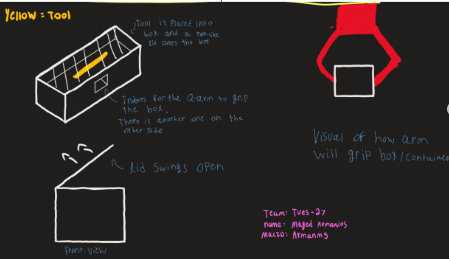 Yellow = Tool
Tool is placed into
box and a net-like
lid closes the box
Indents for the Q-arm to grip
the box.
There is another one on the
other side
Lid Swings open
Front-View
Visual of how arm
will grip box/container
Team: Tues-27
Name: Maged Armanios
MacID: Armanm3